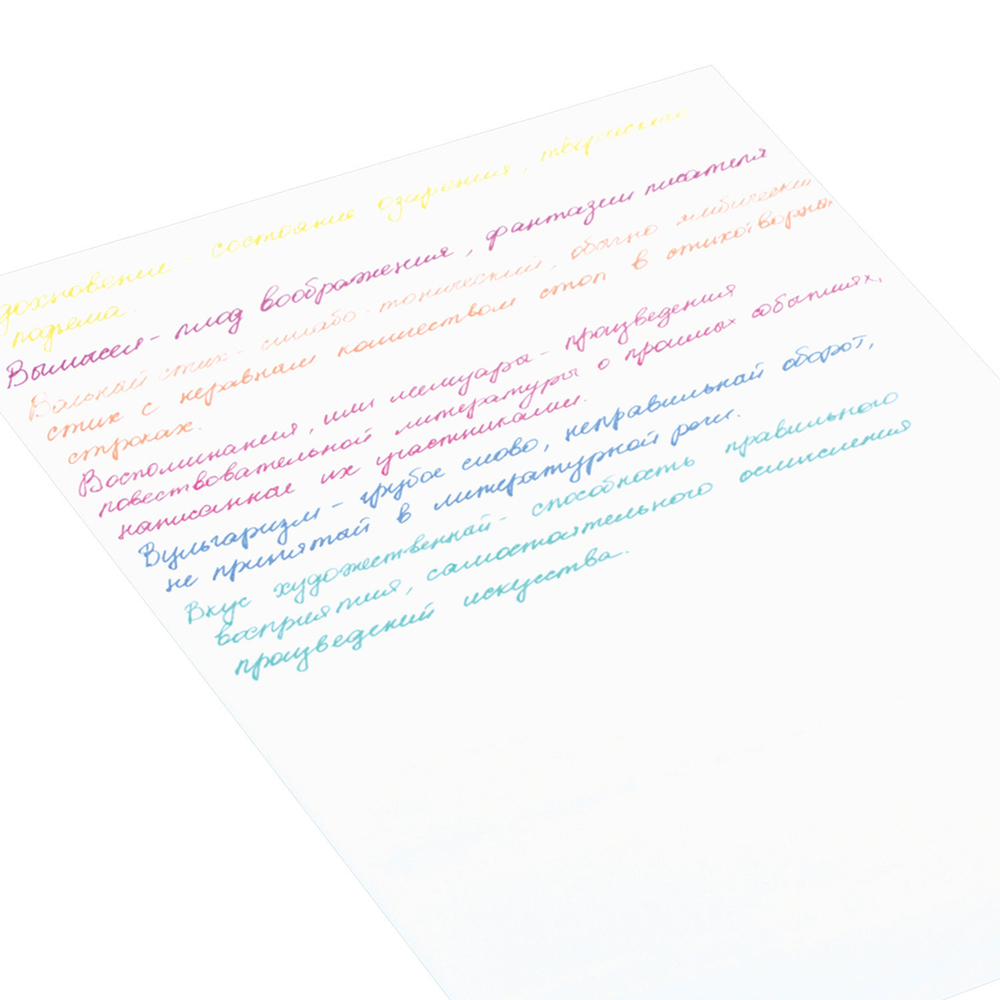 дохновение - состояние озарения, творческого
подъема.
Вымысел - плод воображения, фантазии писателя
Вольный стих - силлабо-тонический, обычно ямбический
стих с неравным количеством стоп в стихотворных
строках.
Воспоминания, или мемуары - произведения
повествовательной литературы о прошлых событиях,
написанное их участниками.
Вульгаризм - грубое слово, неправильный оборот,
не принятый в литературной речи.
Вкус художественный - способность правильного
восприятия, самостоятельного осмысления
произведений искусства.